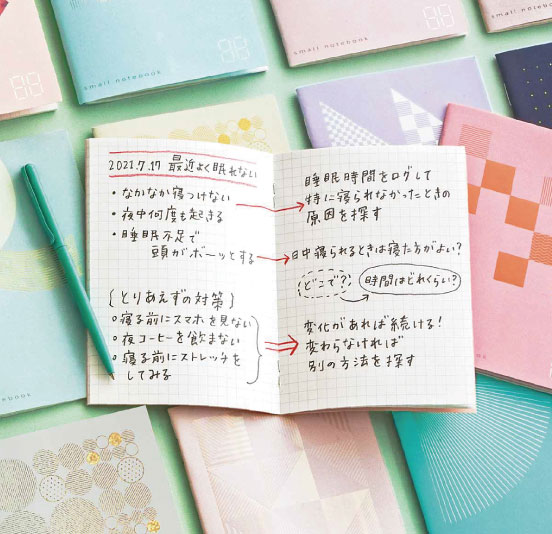 small notebook
89
small notebook
89
small notebook
2021.7.17 最近よく眠れない
・なかなか寝つけない
・夜中何度も起きる
・睡眠不足で
頭がボーッとする
{とりあえずの対策}
○寝る前にスマホを見ない
○夜コーヒーを飲まない
○寝る前にストレッチを
してみる
睡眠時間をログして
特に寝られなかったときの
原因を探す
日中寝られるときは寝た方がよい?
どこで?
時間はどれくらい?
変化があれば続ける!
変わらなければ
別の方法を探す